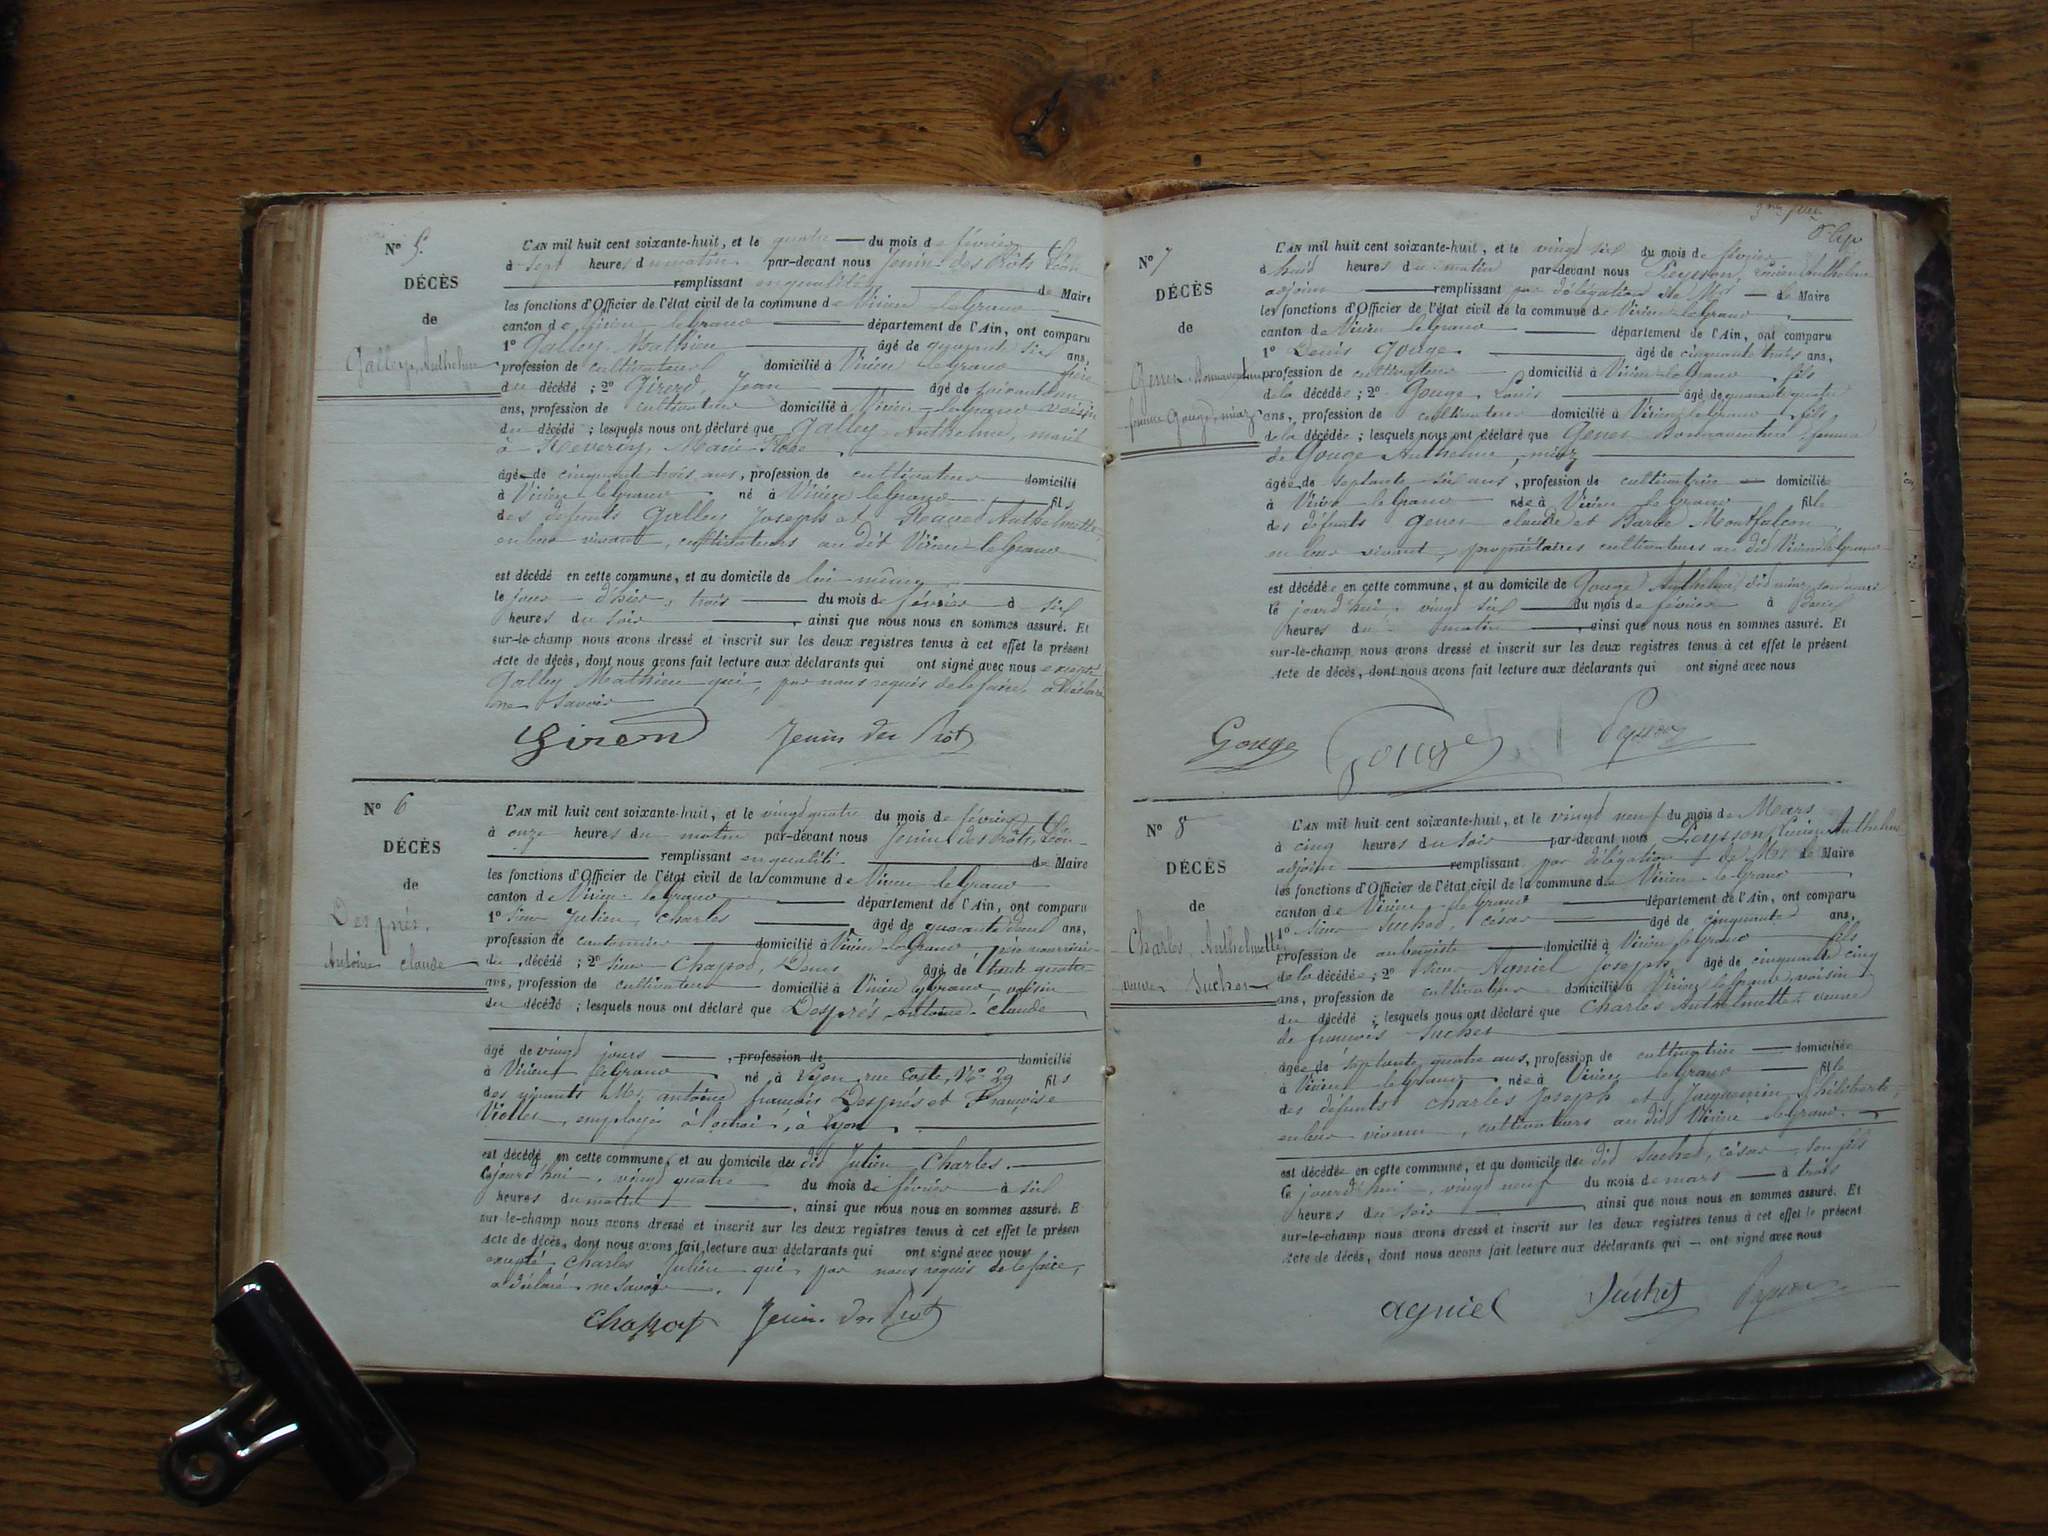 Nº 5.
DÉCÈS
de
Galley, Anthelme
L'AN mil huit cent soixante-huit, et le quatre du mois de février
à sept heures du matin par-devant nous Jenin des Prôts Léon
remplissant en qualité de Maire
les fonctions d'Officier de l'état civil de la commune de Virieu le Grand
canton de Virieu le Grand département de l'Ain, ont comparu
1º Galley, Mathieu âgé de quarante six ans,
profession de cultivateur domicilié à Virieu le Grand frère
du décédé ; 2º Girerd, Jean âgé de soixante un
ans, profession de cultivateur domicilié à Virieu le Grand voisin
du décédé ; lesquels nous ont déclaré que Galley Anthelme, marié
à Marie Rose
âgé de cinquante trois ans, profession de cultivateur domicilié
à Virieu le Grand né à Virieu le Grand fils
des défunts Galley Joseph et Anthelmette,
en leur vivant, cultivateurs au dit Virieu le Grand
est décédé en cette commune, et au domicile de lui-même
le jour d'hier, trois du mois de février à six
heures du soir, ainsi que nous nous en sommes assuré. Et
sur-le-champ nous avons dressé et inscrit sur les deux registres tenus à cet effet le présent
Acte de décès, dont nous avons fait lecture aux déclarants qui ont signé avec nous excepté
Galley Mathieu qui, par nous requis de le faire, a déclaré
ne savoir
Jenin des Prôts
Nº 6
DÉCÈS
de
Després,
Antoine claude
L'AN mil huit cent soixante-huit, et le vingt quatre du mois de février
à onze heures du matin par-devant nous Jenin des Prôts, Léon
remplissant en qualité de Maire
les fonctions d'Officier de l'état civil de la commune de Virieu le Grand
canton de Virieu le Grand département de l'Ain, ont comparu
1º sieur Julien Charles âgé de quarante deux ans,
profession de cantonnier domicilié à Virieu le Grand père nourricier
du décédé ; 2º sieur Chapot, Denis âgé de trente quatre
ans, profession de cultivateur domicilié à Virieu le Grand voisin
du décédé ; lesquels nous ont déclaré que Després Antoine claude
âgé de vingt jours, profession de domicilié
à Virieu le Grand né à Lyon, rue Coste, Nº 29 fils
des vivants Mr antoine françois Després et Françoise
employés à l'octroi, à Lyon
est décédé en cette commune, et au domicile du dit Julien Charles.
Cejourd'hui, vingt quatre du mois de février à six
heures du matin, ainsi que nous nous en sommes assuré. E
sur-le-champ nous avons dressé et inscrit sur les deux registres tenus à cet effet le présen
Acte de décès, dont nous avons fait lecture aux déclarants qui ont signé avec nous
excepté Charles Julien qui, par nous requis de le faire,
a déclaré ne savoir.
Chapot Jenin des Prôts
Nº 7
DÉCÈS
de
Gener Bonnaventure
femme Gouge, miaz
L'AN mil huit cent soixante-huit, et le vingt six du mois de février
à huit heures du matin par-devant nous Peysson, Anthelme
adjoint remplissant par délégation de Mr le Maire
les fonctions d'Officier de l'état civil de la commune de Virieu le Grand
canton de Virieu le Grand département de l'Ain, ont comparu
1º Denis Gouge âgé de cinquante trois ans,
profession de cultivateur domicilié à Virieu le Grand fils
de la décédée ; 2º Gouge Louis âgé de quarante quatre
ans, profession de cultivateur domicilié à Virieu le Grand, fils
de la décédée ; lesquels nous ont déclaré que Gener Bonnaventure, femme
de Gouge Anthelme, miaz
âgée de septante six ans, profession de cultivatrice domiciliée
à Virieu le Grand née à Virieu le Grand fille
des défunts Gener claude et Barbe Montfalcon,
en leur vivant, propriétaires cultivateurs au dit Virieu le Grand
est décédée en cette commune, et au domicile de Gouge Anthelme, dit miaz, son mari
Ce jourd'hui, vingt six du mois de février à
heures du matin, ainsi que nous nous en sommes assuré. Et
sur-le-champ nous avons dressé et inscrit sur les deux registres tenus à cet effet le présent
Acte de décès, dont nous avons fait lecture aux déclarants qui ont signé avec nous
Gouge Gouge Peysson
Nº 8
DÉCÈS
de
Charles, Anthelmette
veuve Suchet
L'AN mil huit cent soixante-huit, et le vingt neuf du mois de Mars
à cinq heures du soir par-devant nous Peysson Anthelme
adjoint remplissant par délégation de Mr le Maire
les fonctions d'Officier de l'état civil de la commune de Virieu le Grand
canton de Virieu le Grand département de l'Ain, ont comparu
1º sieur Suchet, césar âgé de cinquante ans,
profession de aubergiste domicilié à Virieu le Grand fils
de la décédée ; 2º sieur Agniel Joseph âgé de cinquante cinq
ans, profession de cultivateur domicilié à Virieu le Grand voisin
du décédé ; lesquels nous ont déclaré que Charles Anthelmette veuve
de françois Suchet
âgée de septante quatre ans, profession de cultivatrice domiciliée
à Virieu le Grand née à Virieu le Grand fille
des défunts Charles Joseph et Jacquemin Philiberte,
en leur vivant, cultivateurs au dit Virieu le Grand.
est décédée en cette commune, et au domicile du dit Suchet, césar, son fils
Ce jourd'hui, vingt neuf du mois de mars à trois
heures du soir, ainsi que nous nous en sommes assuré. Et
sur-le-champ nous avons dressé et inscrit sur les deux registres tenus à cet effet le présent
Acte de décès, dont nous avons fait lecture aux déclarants qui ont signé avec nous
agniel Suchet Peysson